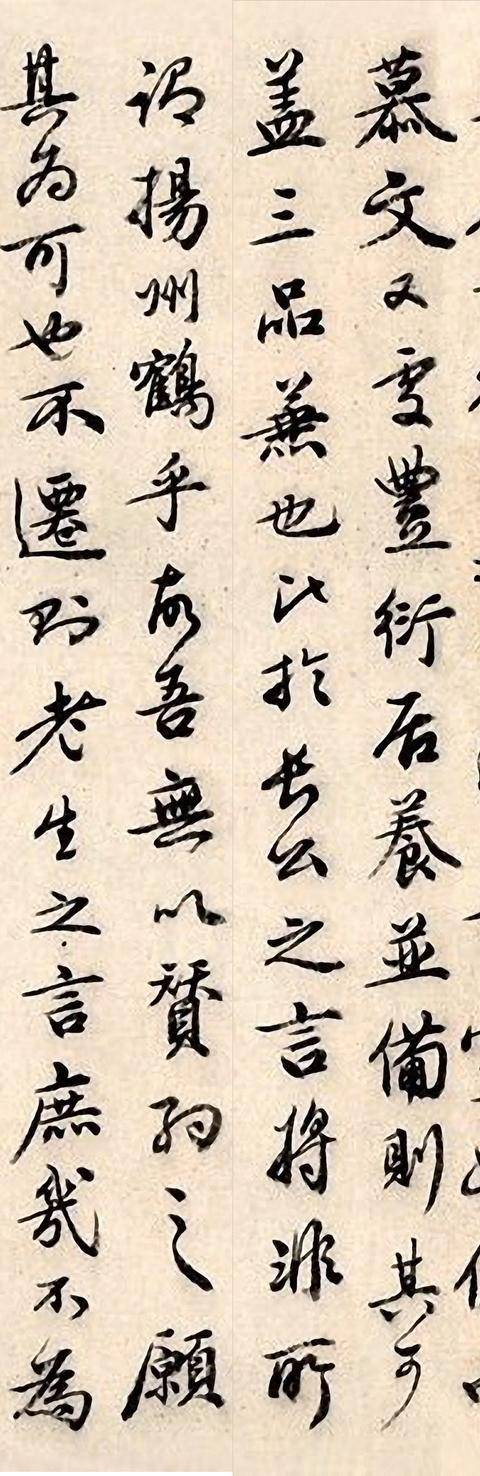 慕文又受豐衍居養並備則其可
蓋三品兼也比於長公之言將非所
謂揚州鶴乎故吾無以贊祁之願
其為可也不遷則老生之言庶幾不為